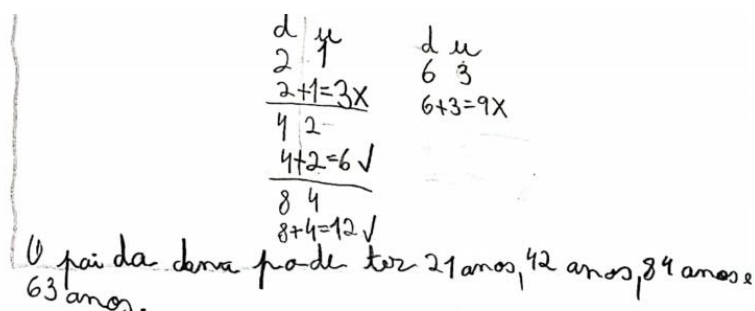 d u
2 1
2+1=3X
4 2
4+2=6 √
8 4
8+4=12 √
d u
6 3
6+3=9X
O pai da dona pode ter 21 anos, 42 anos, 84 anos e
63 anos.